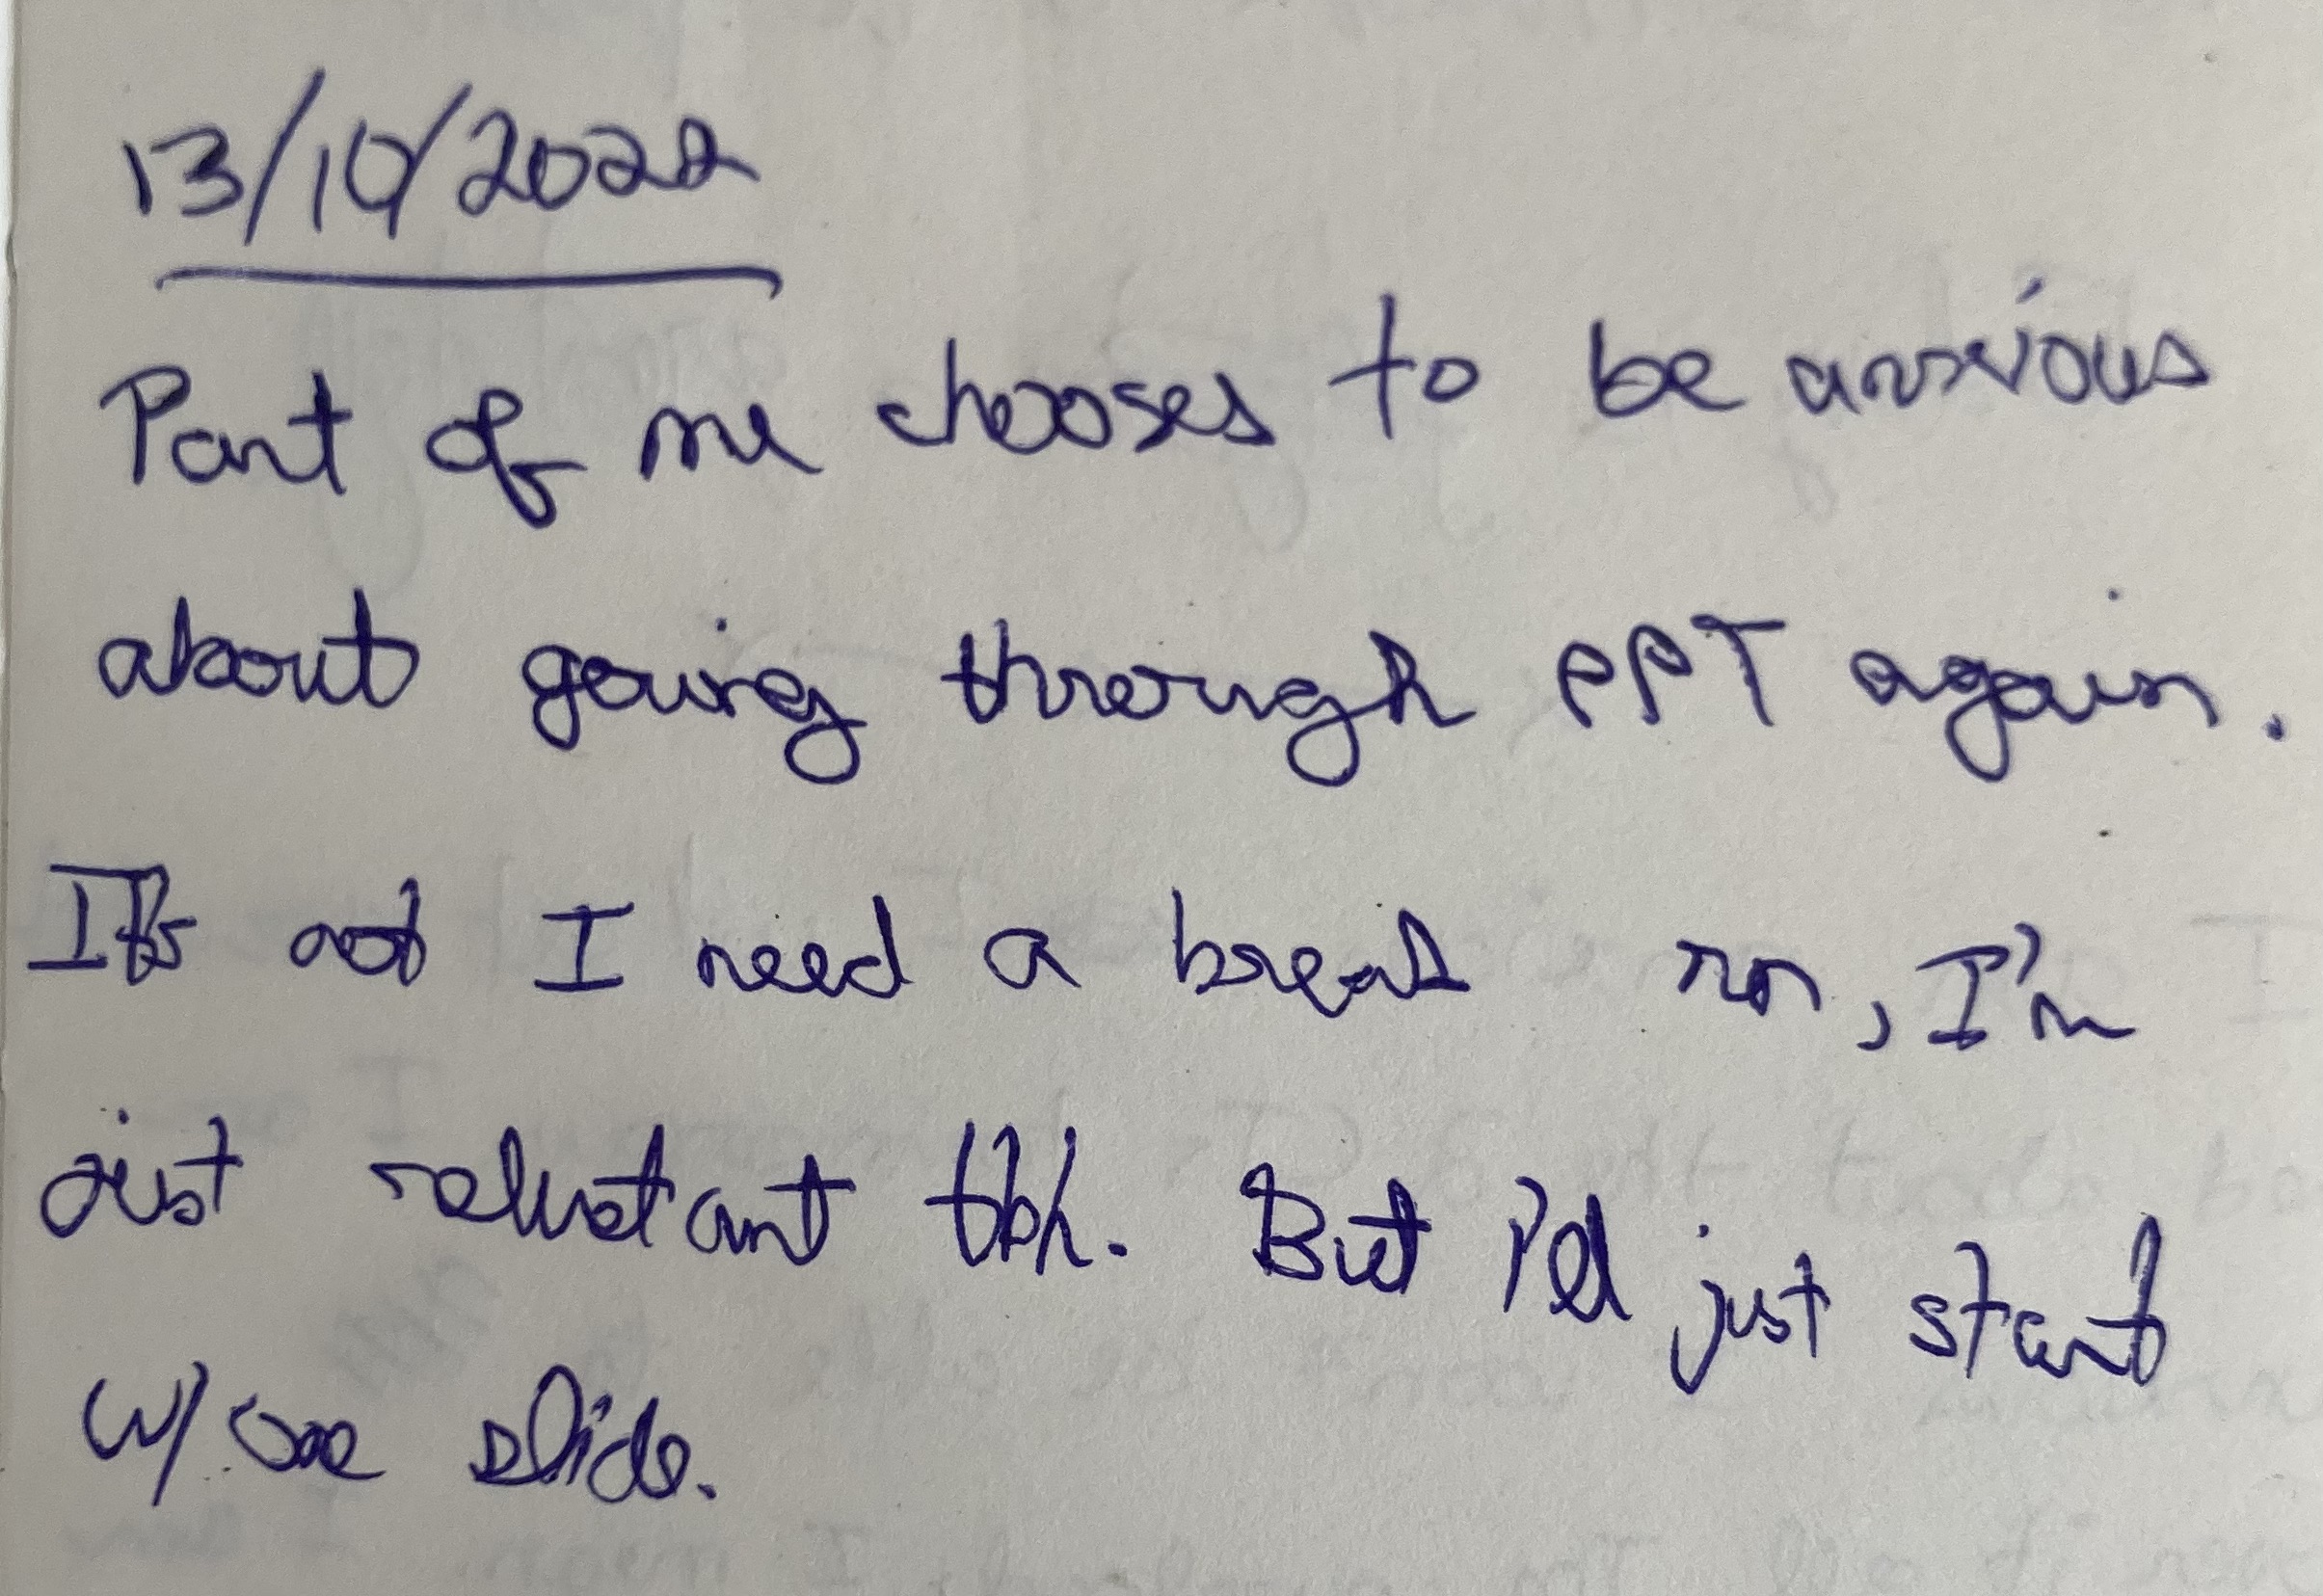 13/10/2022
Part of me chooses to be anxious
about going through PPT again.
It's not I need a break rn, I'm
just reluctant tbh. But I'll just start
w/ one slide.